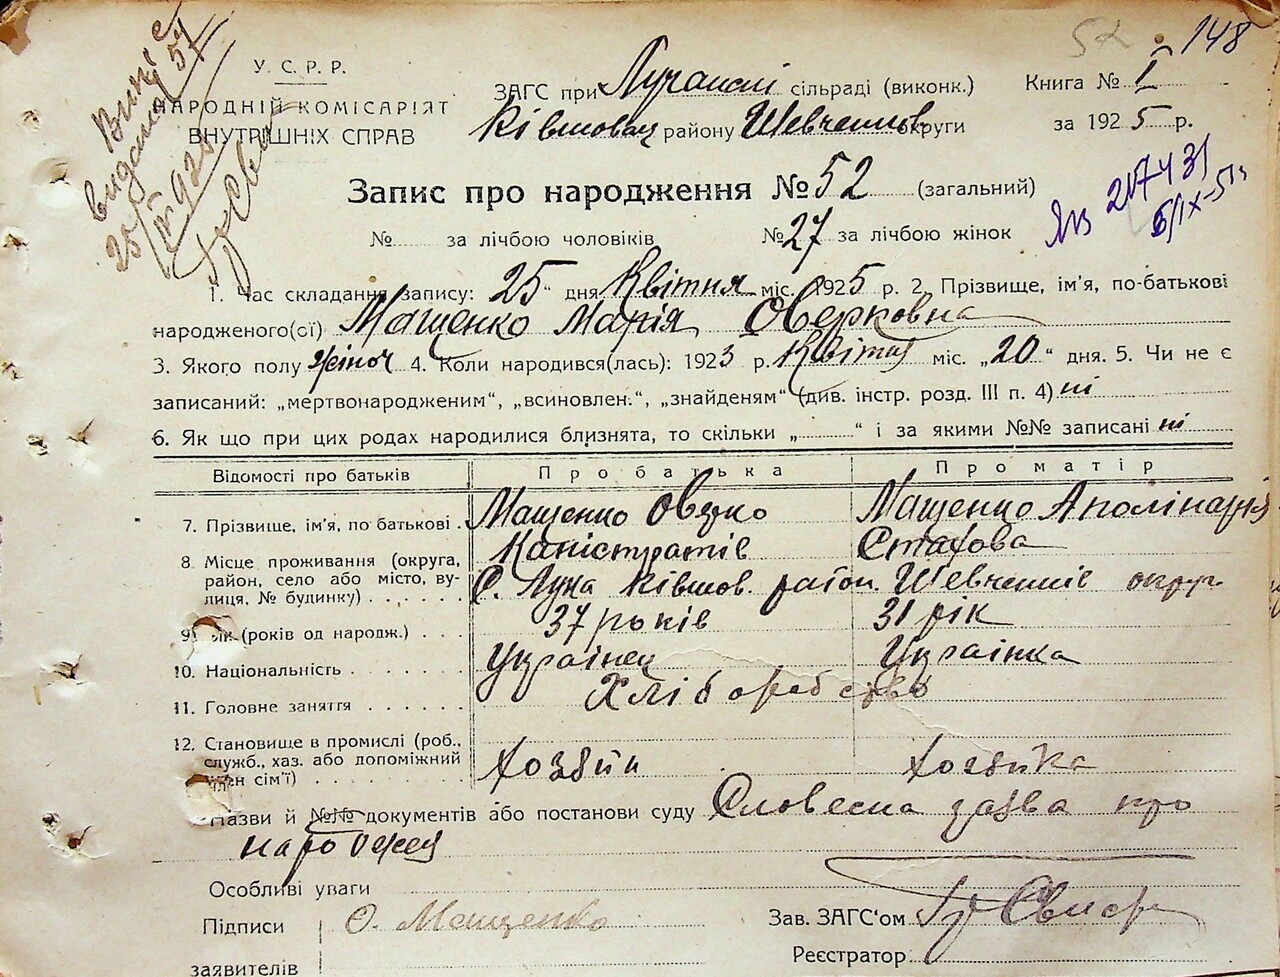 52 148
Випис
видано 57
25/ІІ 925
У. С. Р. Р.
НАРОДНІЙ КОМІСАРІЯТ
ВНУТРІШНІХ СПРАВ
ЗАГС при Луганскі сільраді (виконк.)
Ківшовац району Шевченков округи
Книга № I
за 1925 р.
Запис про народження № 52 (загальний)
№ за лічбою чоловіків № 27 за лічбою жінок
217431
5/IX-51
1. Час складання запису: „25“ дня Квітня міс. 1925 р. 2. Прізвище, ім'я, по-батькові
народженого(ої) Мащенко Марія Оверковна
3. Якого полу жіноч 4. Коли народився(лась): 1923 р. Квітня міс. „20“ дня. 5. Чи не є
записаний: „мертвонародженим“, „всиновлен.“, „знайденям“ (див. інстр. розд. III п. 4) ні
6. Як що при цих родах народилися близнята, то скільки „ “ і за якими №№ записані ні
Відомості про батьків Про батька Про матір
7. Прізвище, ім'я, по батькові Мащенко Оверко Мащенко Аполінарія
Каністратів Стахова
8. Місце проживання (округа,
район, село або місто, ву-
лиця, № будинку) с. Лука Ківшов. район. Шевченків округ
9. Вік (років од народж.) 37 років 31 рік
10. Національність Українец Українка
11. Головне заняття Хліборобство
12. Становище в промислі (роб.,
служб., хаз. або допоміжний
член сім'ї) Хозяїн Хозяйка
Назви й №№ документів або постанови суду Словесна заява про
народженя
Особливі уваги
Підписи О. Мащенко
заявителів
Зав. ЗАГС'ом
Реєстратор